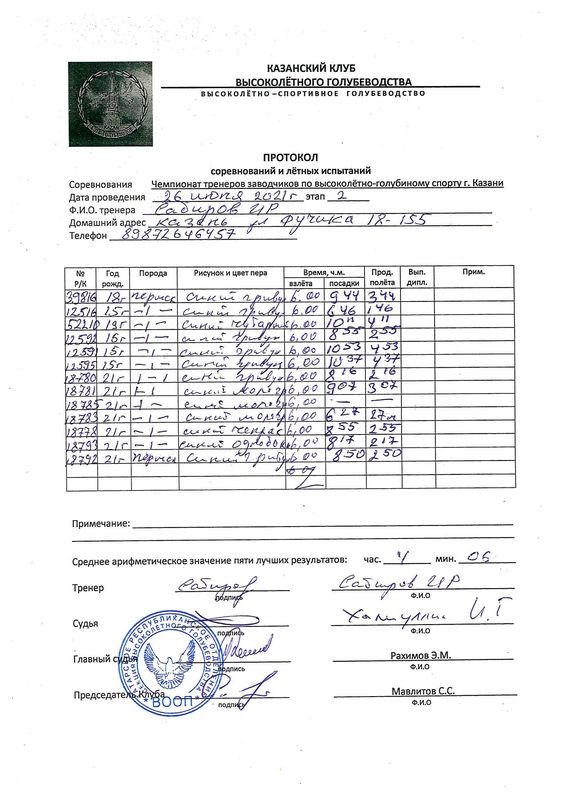 КАЗАНСКИЙ КЛУБ
ВЫСОКОЛЁТНОГО ГОЛУБЕВОДСТВА
ВЫСОКОЛЁТНО – СПОРТИВНОЕ ГОЛУБЕВОДСТВО
ПРОТОКОЛ
соревнований и лётных испытаний
Соревнования Чемпионат тренеров заводчиков по высоколётно-голубиному спорту г. Казани
Дата проведения 26 июня 2021г этап 2
Ф.И.О. тренера Сабиров ИР
Домашний адрес Казань ул Фучика 18-155
Телефон 89872646457
№ Р/К Год рожд. Порода Рисунок и цвет пера Время, ч.м. взлёта посадки Прод. полёта Вып. дипл. Прим.
39816 18г синий гривун 6,00 9 44 3 44
12516 15г -1- синий гривун 6,00 6 46 1 46
52210 19г -1- синий 6,00 10 11 4 11
12592 16г -1- гривун 6,00 8 55 2 55
12591 15г -1- синий гривун 6,00 10 53 4 53
12595 15г -1- синий гривун 6,00 10 37 4 37
18780 21г -1- синий гривун 6,00 8 16 2 16
18781 21г синий 6,00 9 07 3 07
18785 21г синий 6,00 — —
18783 21г -1- синий 6,00 6 27 27м
18778 21г -1- синий 6,00 8 55 2 55
18793 21г -1- синий 6,00 8 17 2 17
18792 21г синий гривун 6,00 8 50 2 50
Примечание:
Среднее арифметическое значение пяти лучших результатов: час. 4 мин. 05
Тренер Сабиров Сабиров ИР
подпись Ф.И.О
Судья Халиуллин И.Г
подпись Ф.И.О
Главный судья Рахимов Э.М.
подпись Ф.И.О
Председатель Клуба Мавлитов С.С.
подпись Ф.И.О
ТАТАРСКОЕ РЕСПУБЛИКАНСКОЕ ОТДЕЛЕНИЕ
ВЫСОКОЛЕТНОГО ГОЛУБЕВОДСТВА
* ВООП *